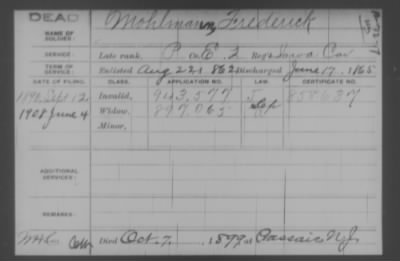 DEAD
Mohlmann, Frederick
NAME OF SOLDIER:
SERVICE: Late rank, P Co. E, 2 Reg't Iowa Cav
TERM OF SERVICE: Enlisted Aug 22, 1862 Discharged June 17, 1865
DATE OF FILING. CLASS. APPLICATION NO. LAW. CERTIFICATE NO.
1890 Sept 12 Invalid, 943,577 858637
1908 June 4 Widow, 897.065
Minor,
ADDITIONAL SERVICES:
REMARKS:
Died Oct. 7, 1899, at Passaic N.J.